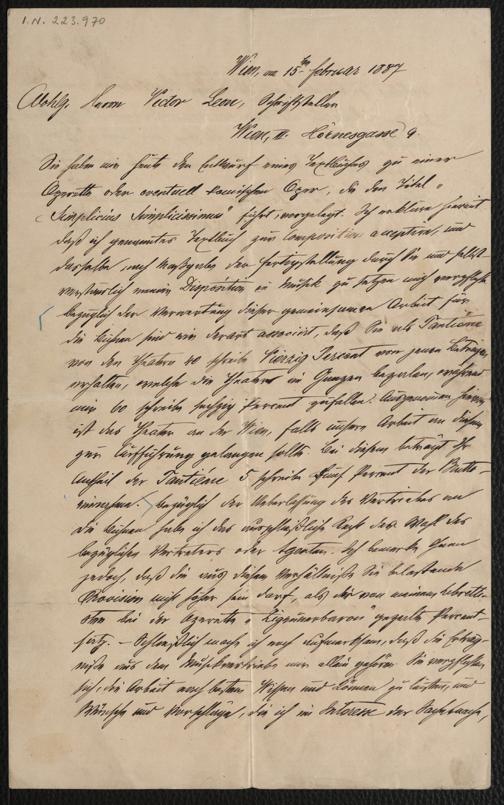 I.N. 223.970
Wien, am 15ten Februar 1887
Wohlg. Herrn Victor Leon, Schriftsteller
Wien, II. Hörnesgasse 9
Sie haben mir heute den Entwurf eines Textbuches zu einer
Operette oder eventuell komischen Oper, die den Titel
„Simplicius Simplicissimus" führt, vorgelegt. Ich erkläre hiermit
daß ich genanntes Textbuch zur Composition acceptire, und
dasselbe, nach Maßgabe der Fertigstellung durch Sie und selbst
verständlich meiner Disposition in Musik zu setzen mich verpflichte
bezüglich der Verwertung dieser gemeinsamen Arbeit für
die Bühnen sind wir derart associrt, daß Sie als Tantième
von den Theatern 40 schreibe Vierzig Percent von jenen Beträgen
erhalten, welche die Theater im Ganzen bezalen, während
mir 60 schreibe sechzig Percent zufallen. Ausgenommen hievon
ist das Theater an der Wien, falls unsere Arbeit an diesem
zur Aufführung gelangen sollte. Bei diesem beträgt Ihr
Antheil der Tantième 5 schreibe Fünf Percent der Brutto-
einnahme. Bezüglich der Ueberlassung des Vertriebes an
die Bühnen habe ich das ausschließliche Recht der Wahl des
bezüglichen Vertreters oder Agenten. Ich bemerke Ihnen
jedoch, daß die aus diesem Verhältniße Sie belastende
Provision nicht höher sein darf, als die von meinem Libretti-
sten bei der Operette „Zigeunerbaron" gezalte Percent-
satz. – Schließlich mache ich noch aufmerksam, daß die Erträg-
nisse aus dem Musikvertriebe mir allein gehören. Sie verpflichten
sich, die Arbeit nach bestem Wissen und Können zu leisten, und
Wünsche und Vorschläge, die ich im Interesse der Sache mache,